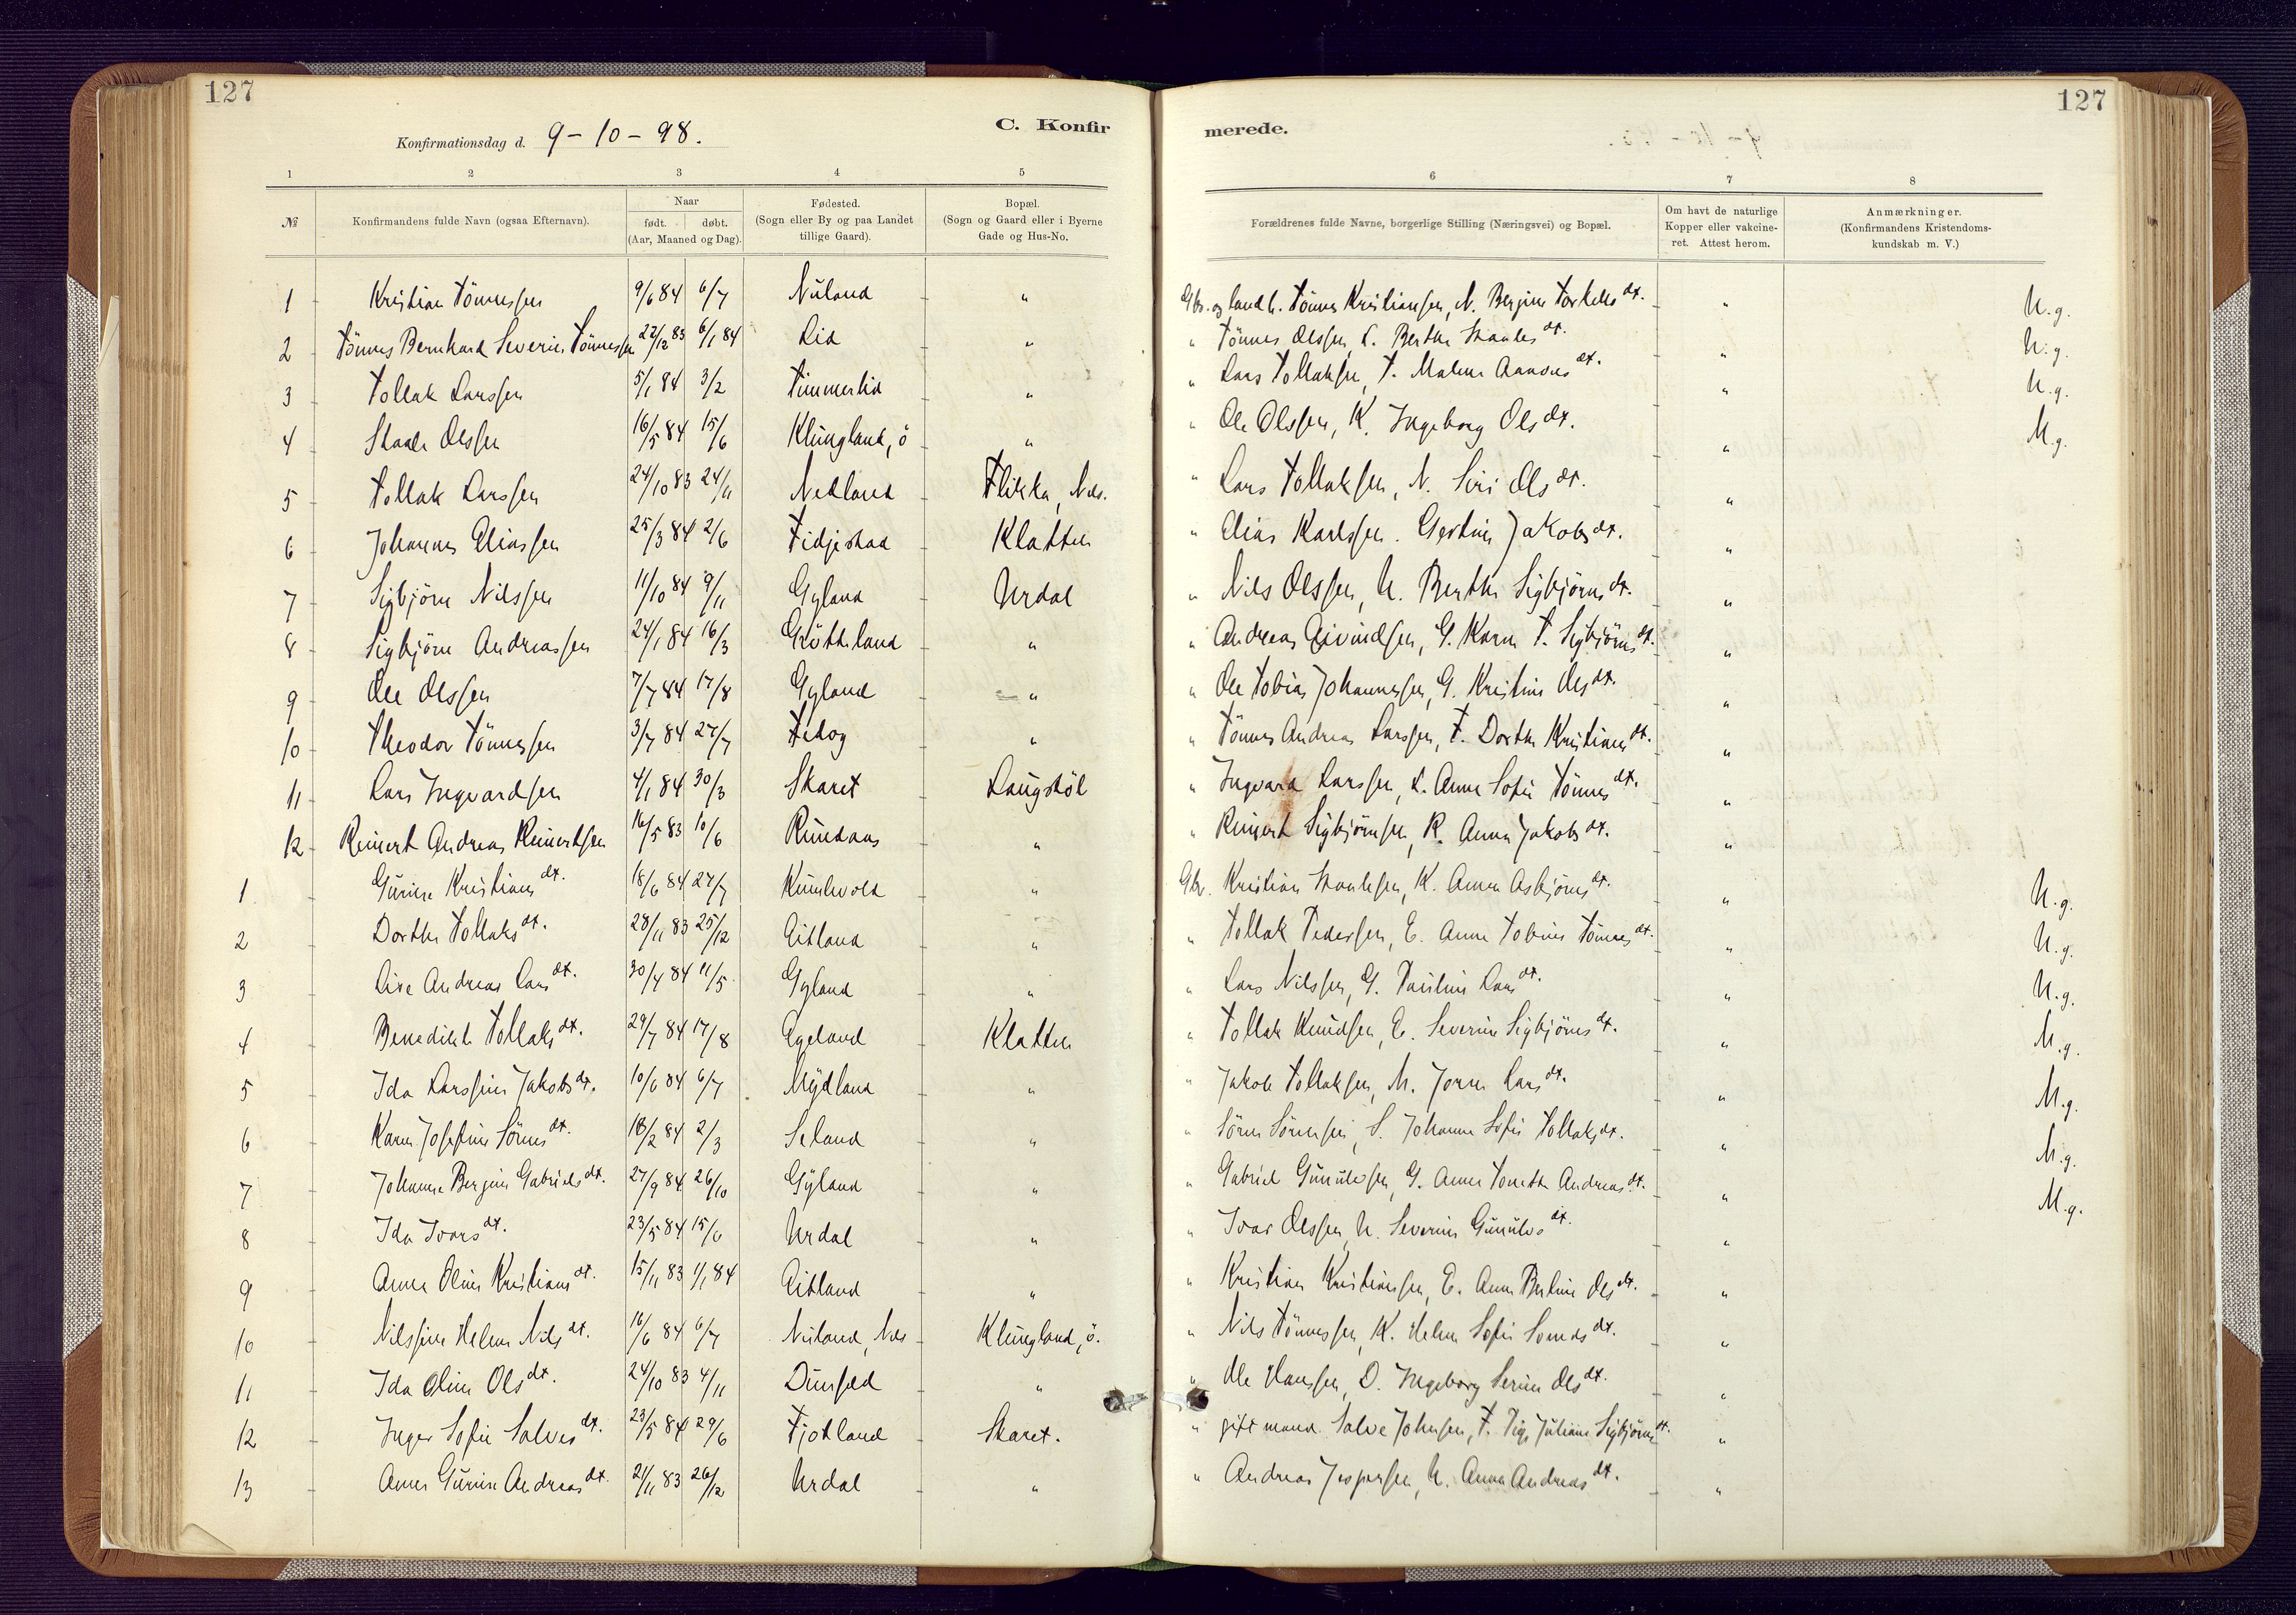 127
127
C. Konfirmerede.
Konfirmationsdag d. 9-10-98.
1 2 3 4 5 6 7 8
№ Konfirmandens fulde Navn (ogsaa Efternavn). Naar født. døbt. (Aar, Maaned og Dag). Fødested. (Sogn eller By og paa Landet tillige Gaard). Bopæl. (Sogn og Gaard eller i Byerne Gade og Hus-No. Forældrenes fulde Navne, borgerlige Stilling (Næringsvei) og Bopæl. Om havt de naturlige Kopper eller vakcineret. Attest herom. Anmærkninger. (Konfirmandens Kristendomskundskab m. V.)
1 Kristian Tönnessen 9/6 84 6/7 Nuland " Gbr. og landh. Tönnes Kristiansen, N. Bergine Torkels dt. " U.g.
2 Tönnes Bernhard Severin Tönnessen 22/12 83 6/1 84 Lid " " Tönnes Olssen, L. Berthe Staales dt. " U.g.
3 Tollak Larssen 5/1 84 3/2 Timmerlid " " Lars Tollaksen, T. Malene Aanons dt. " U.g.
4 Staale Olssen 16/5 84 15/6 Klungland, ö " " Ole Olssen, K. Ingeborg Ols dt. " M.g.
5 Tollak Larssen 24/10 83 24/11 Nedland Flikka, Nes. " Lars Tollaksen, N. Siri Ols dt. "
6 Johannes Eliassen 25/3 84 2/6 Fidjestad Klatten " Elias Karlssen. Gertine Jakobs dt. "
7 Sigbjörn Nilssen 11/10 84 9/11 Gyland Urdal " Nils Olssen, U. Berthe Sigbjörns dt. "
8 Sigbjörn Andreassen 24/1 84 16/3 Grötteland " " Andreas Eivindsen, G. Karen T. Sigbjörns dt. "
9 Ole Olssen 7/7 84 17/8 Gyland " " Ole Tobias Johannessen, G. Kristine Ols dt. "
10 Theodor Tönnessen 3/7 84 27/7 Fedog " " Tönnes Andreas Larssen, F. Dorthe Kristians dt. "
11 Lars Ingvardsen 4/1 84 30/3 Skaret Laugstöl " Ingvard Larssen, L. Anne Sofie Tönnes dt. "
12 Reinert Andreas Reinertsen 16/5 83 10/6 Rundaas " " Reinert Sigbjörnsen, R. Anna Jakobs dt. "
1 Gurine Kristians dt. 18/6 84 27/7 Kumlevold " Gbr. Kristian Staalesen, K. Anna Asbjörns dt. " U.g.
2 Dorthe Tollaks dt. 28/11 83 25/12 Eitland " " Tollak Pedersen, E. Anne Tobine Tönnes dt. " U.g.
3 Lise Andrea Lars dt. 30/4 84 11/5 Gyland " " Lars Nilssen, G. Pauline Lars dt. " U.g.
4 Benedikte Tollaks dt. 29/7 84 17/8 Egeland Klatten " Tollak Knudsen, E. Severine Sigbjörns dt. " M.g.
5 Ida Larssine Jakobs dt. 10/6 84 6/7 Mydland " " Jakob Tollaksen, M. Joren Lars dt. " M.g.
6 Karen Josefine Sörens dt. 18/2 84 2/3 Seland " " Sören Sörensen, S. Johanne Sofie Tollaks dt. " M.g.
7 Johanne Bergine Gabriels dt. 27/9 84 26/10 Gyland " " Gabriel Gunulvsen, G. Anne Tonette Andreas dt. " M.g.
8 Ida Ivars dt. 23/5 84 15/6 Urdal " " Ivar Olssen, U. Severine Gunulvs dt. "
9 Anna Oline Kristians dt. 15/11 83 1/1 84 Eitland " " Kristian Kristiansen, E. Anne Bertine Ols dt. "
10 Nilssine Helene Nils dt. 16/6 84 6/7 Nuland, Nes Klungland, ö. " Nils Tönnessen, K. Helene Sofie Sven ds dt. "
11 Ida Oline Ols dt. 24/10 83 4/11 Dunsæd " " Ole Hanssen, D. Ingeborg Serine Ols dt. "
12 Inger Sofie Salves dt. 23/5 84 29/6 Fjotland Skaret. " gift mand Salve Johnsen, F. Pige Juliane Sigbjörns dt. "
13 Anne Gurine Andreas dt. 21/11 83 26/12 Urdal " " Andreas Jespersen, U. Anna Andreas dt. "